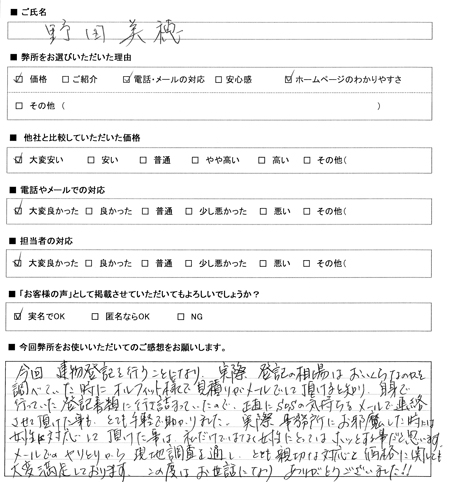 ■ ご氏名
野田 美穂
■ 弊所をお選びいただいた理由
☑ 価格 □ ご紹介 ☑ 電話・メールの対応 □ 安心感 ☑ ホームページのわかりやすさ
□ その他 ( )
■ 他社と比較していただいた価格
☑ 大変安い □ 安い □ 普通 □ やや高い □ 高い □ その他(
■ 電話やメールでの対応
☑ 大変良かった □ 良かった □ 普通 □ 少し悪かった □ 悪い □ その他(
■ 担当者の対応
☑ 大変良かった □ 良かった □ 普通 □ 少し悪かった □ 悪い □ その他(
■ 「お客様の声」として掲載させていただいてもよろしいでしょうか？
☑ 実名でOK □ 匿名ならOK □ NG
■ 今回弊所をお使いいただいてのご感想をお願いします。
今回 建物登記を行うことになり、実際 登記の相場はおいくらなのかを
調べていた時に オルフィット様で見積りがメールでして頂けると知り、自身で
行っていた登記書類に行き詰まっていたので、正直 の気持ちでメールで連絡
させて頂いた事も とても手軽で助かりました。実際 事務所にお邪魔した時には
女性が対応して頂けた事は 私だけではなく女性にとっては ホッとする事だと思います。
メールでのやりとりから 現地調査を通し、とても親切な対応と価格に関しても
大変満足しております。この度はお世話になり ありがとうございました!!